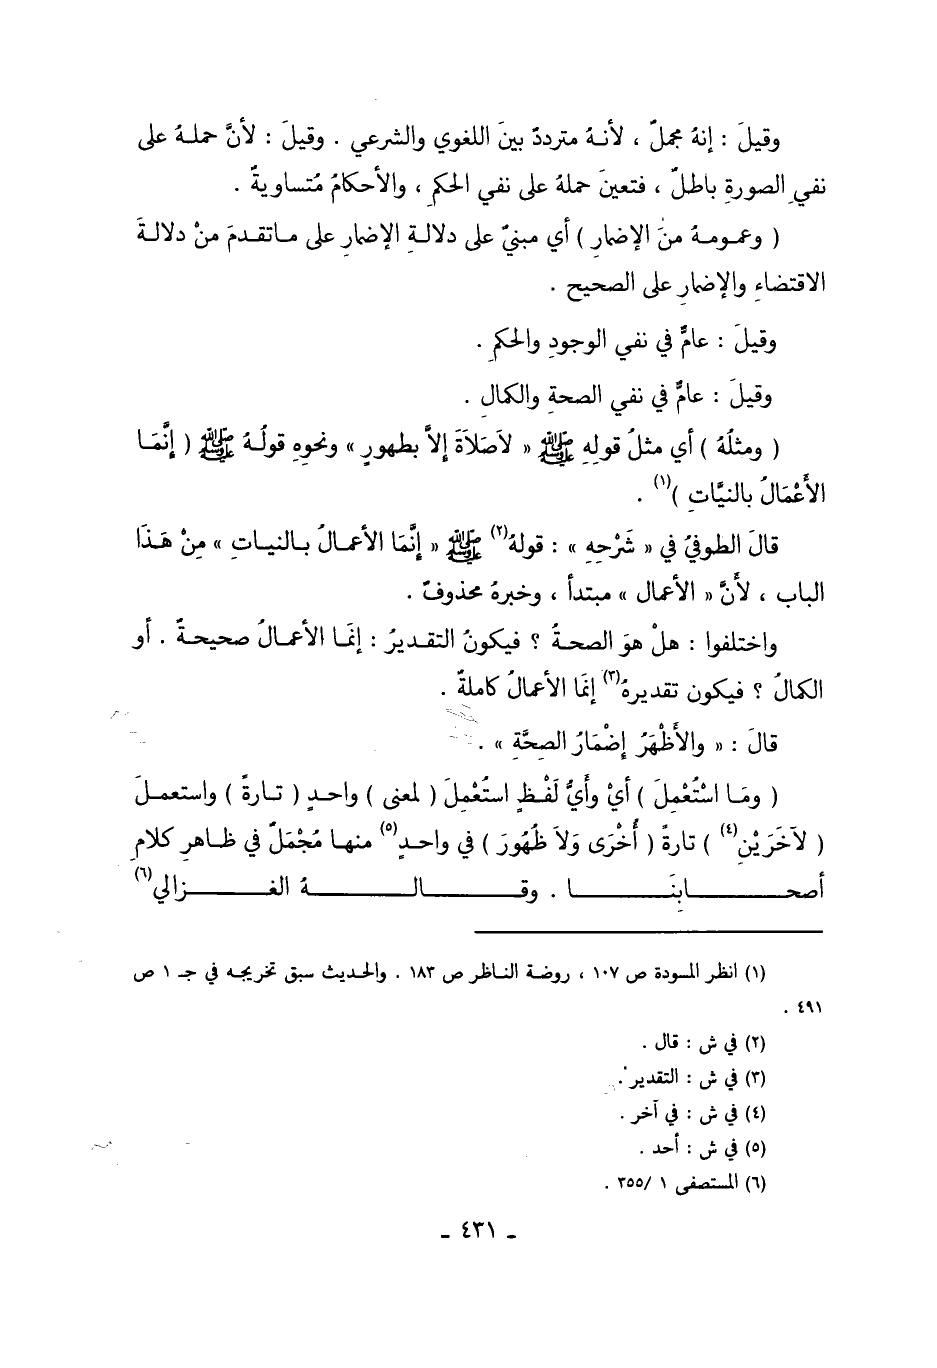 وقيلَ : إنهُ مجملٌ ، لأنهُ مترددٌ بينَ اللغوي والشرعي . وقيلَ : لأنَّ حملهُ على
نفيِ الصورةِ باطلٌ ، فتعينَ حملهُ على نفي الحكمِ ، والأحكامُ مُتساويةٌ .
( وعمومهُ منَ الإضمارِ ) أي مبنيٌ على دلالةِ الإضمارِ على ماتقدمَ منْ دلالةِ
الاقتضاءِ والإضمارِ على الصحيح .
وقيلَ : عامٌّ في نفي الوجودِ والحكمِ .
وقيلَ : عامٌّ في نفي الصحةِ والكمالِ .
( ومثلُهُ ) أي مثلُ قولِهِ ﷺ « لاَصَلاَةَ إلاَّ بطهورٍ » ونحوِهِ قولُهُ ﷺ ( إنَّمَا
الأَعْمَالُ بالنيَّاتِ )(١) .
قالَ الطوفيُ في « شَرْحِهِ » : قولهُ(٢) ﷺ « إنَّمَا الأعمالُ بالنياتِ » مِنْ هَذَا
الباب ، لأَنَّ « الأعمال » مبتدأ ، وخبرهُ محذوفٌ .
واختلفوا : هلْ هوَ الصحةُ ؟ فيكونُ التقديرُ : إنَمَا الأعمالُ صحيحةٌ . أو
الكمالُ ؟ فيكون تقديرهُ(٣) إنمَا الأعمالُ كاملةٌ .
قالَ : « والأَظْهَرُ إضْمَارُ الصحَّةِ » .
( ومَا اسْتُعْمِلَ ) أيْ وأيُّ لَفْظٍ استُعْمِلَ ( لمعنى ) واحدٍ ( تارةً ) واستعملَ
( لآخَرَيْنِ(٤) ) تارةً ( أُخْرَى وَلاَ ظُهُورَ ) في واحدٍ(٥) منها مُجْمَلٌ في ظاهرِ كلامِ
أصحابِنَا . وقالهُ الغزالي(٦)
(١) انظر المسودة ص ١٠٧ ، روضة الناظر ص ١٨٣ . والحديث سبق تخريجه في جـ ١ ص
٤٩١ .
(٢) في ش : قال .
(٣) في ش : التقدير .
(٤) في ش : في آخر .
(٥) في ش : أحد .
(٦) المستصفى ١ /٣٥٥ .
ـ ٤٣١ ـ